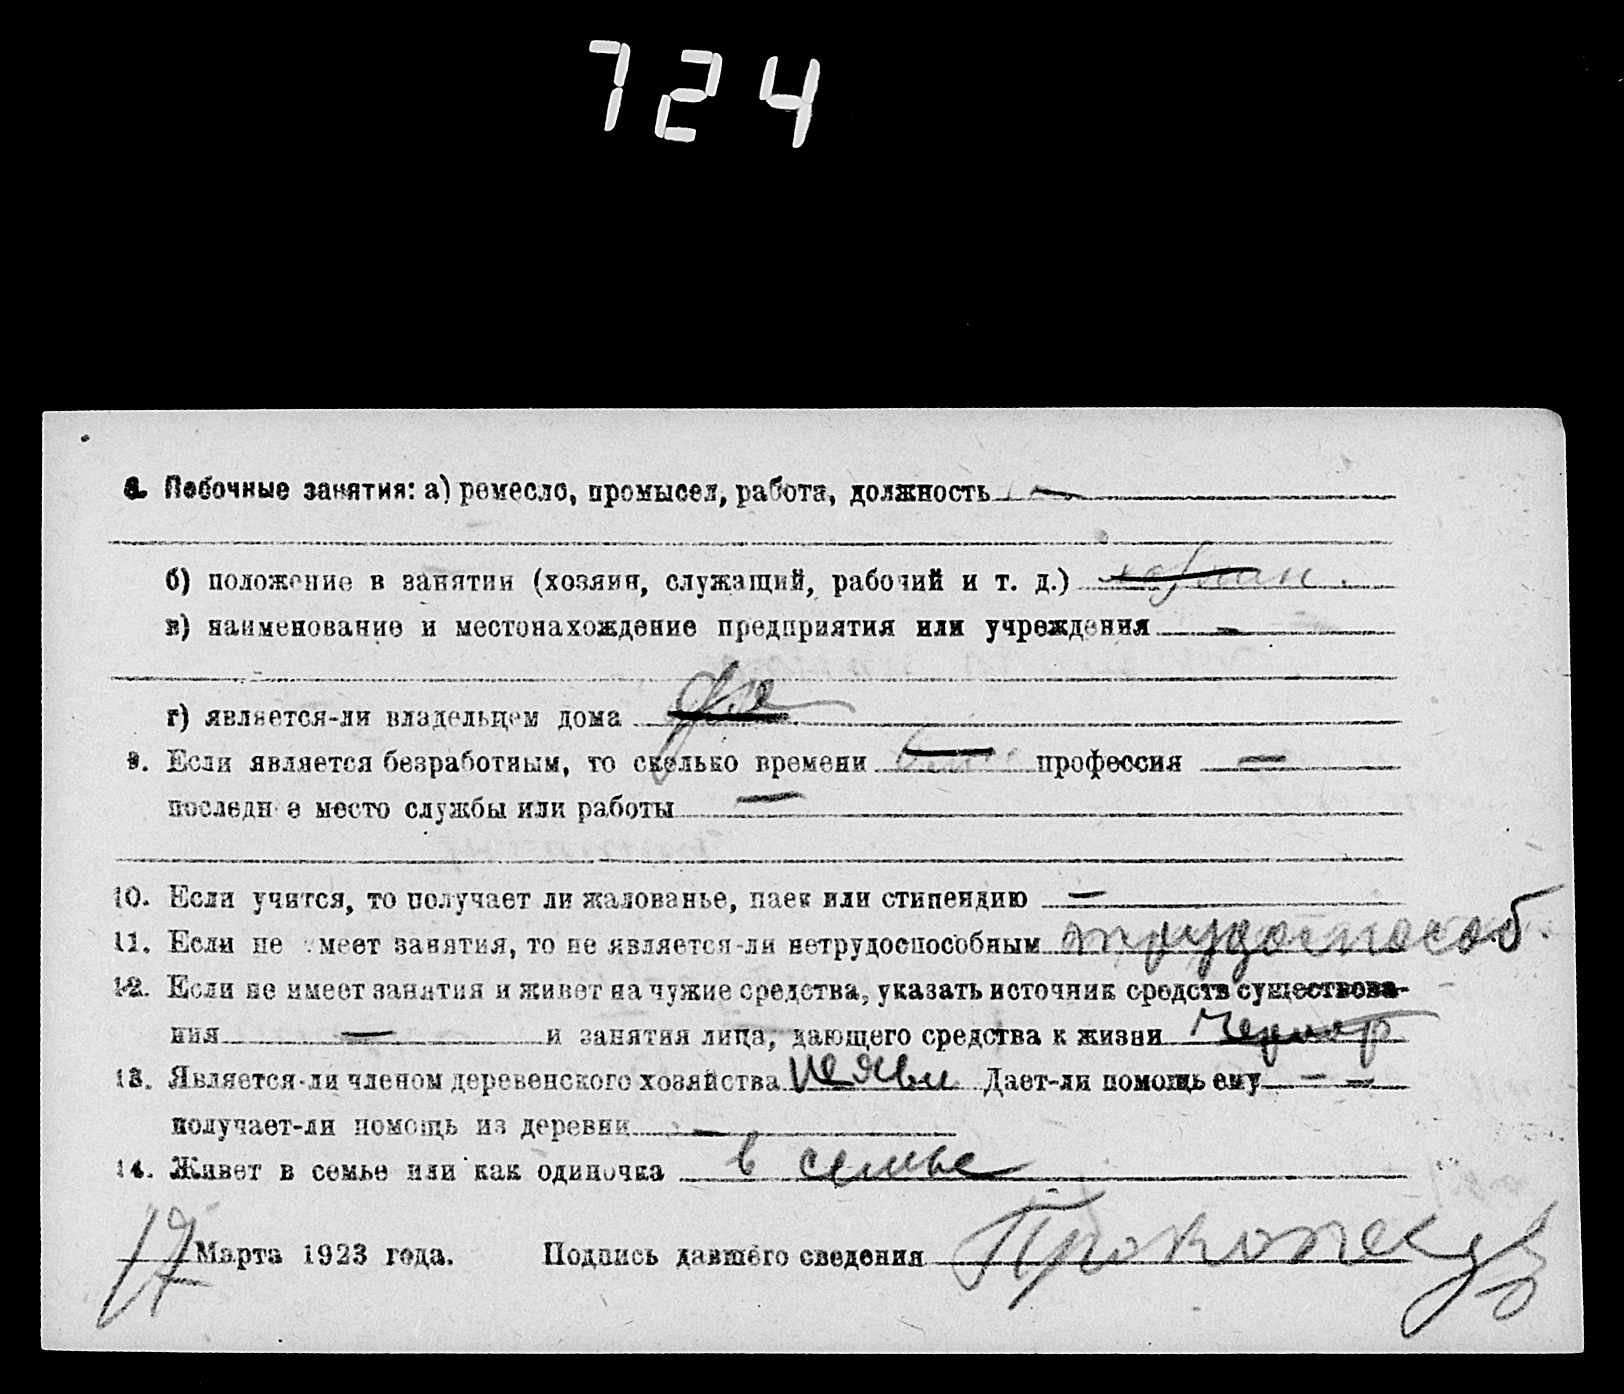 724
8. Побочные занятия: а) ремесло, промысел, работа, должность —
б) положение в занятии (хозяин, служащий, рабочий и т. д.)
в) наименование и местонахождение предприятия или учреждения —
г) является-ли владельцем дома да
9. Если является безработным, то сколько времени — профессия —
последн е место службы или работы —
10. Если учится, то получает ли жалованье, паек или стипендию —
11. Если не имеет занятия, то не является-ли нетрудоспособным трудоспособ.
12. Если не имеет занятия и живет на чужие средства, указать источник средств существова-
ния — и занятия лица, дающего средства к жизни
13. Является-ли членом деревенского хозяйства не явл. Дает-ли помощь ему — —
получает-ли помощь из деревни —
14. Живет в семье или как одиночка в семье
17 Марта 1923 года. Подпись давшего сведения